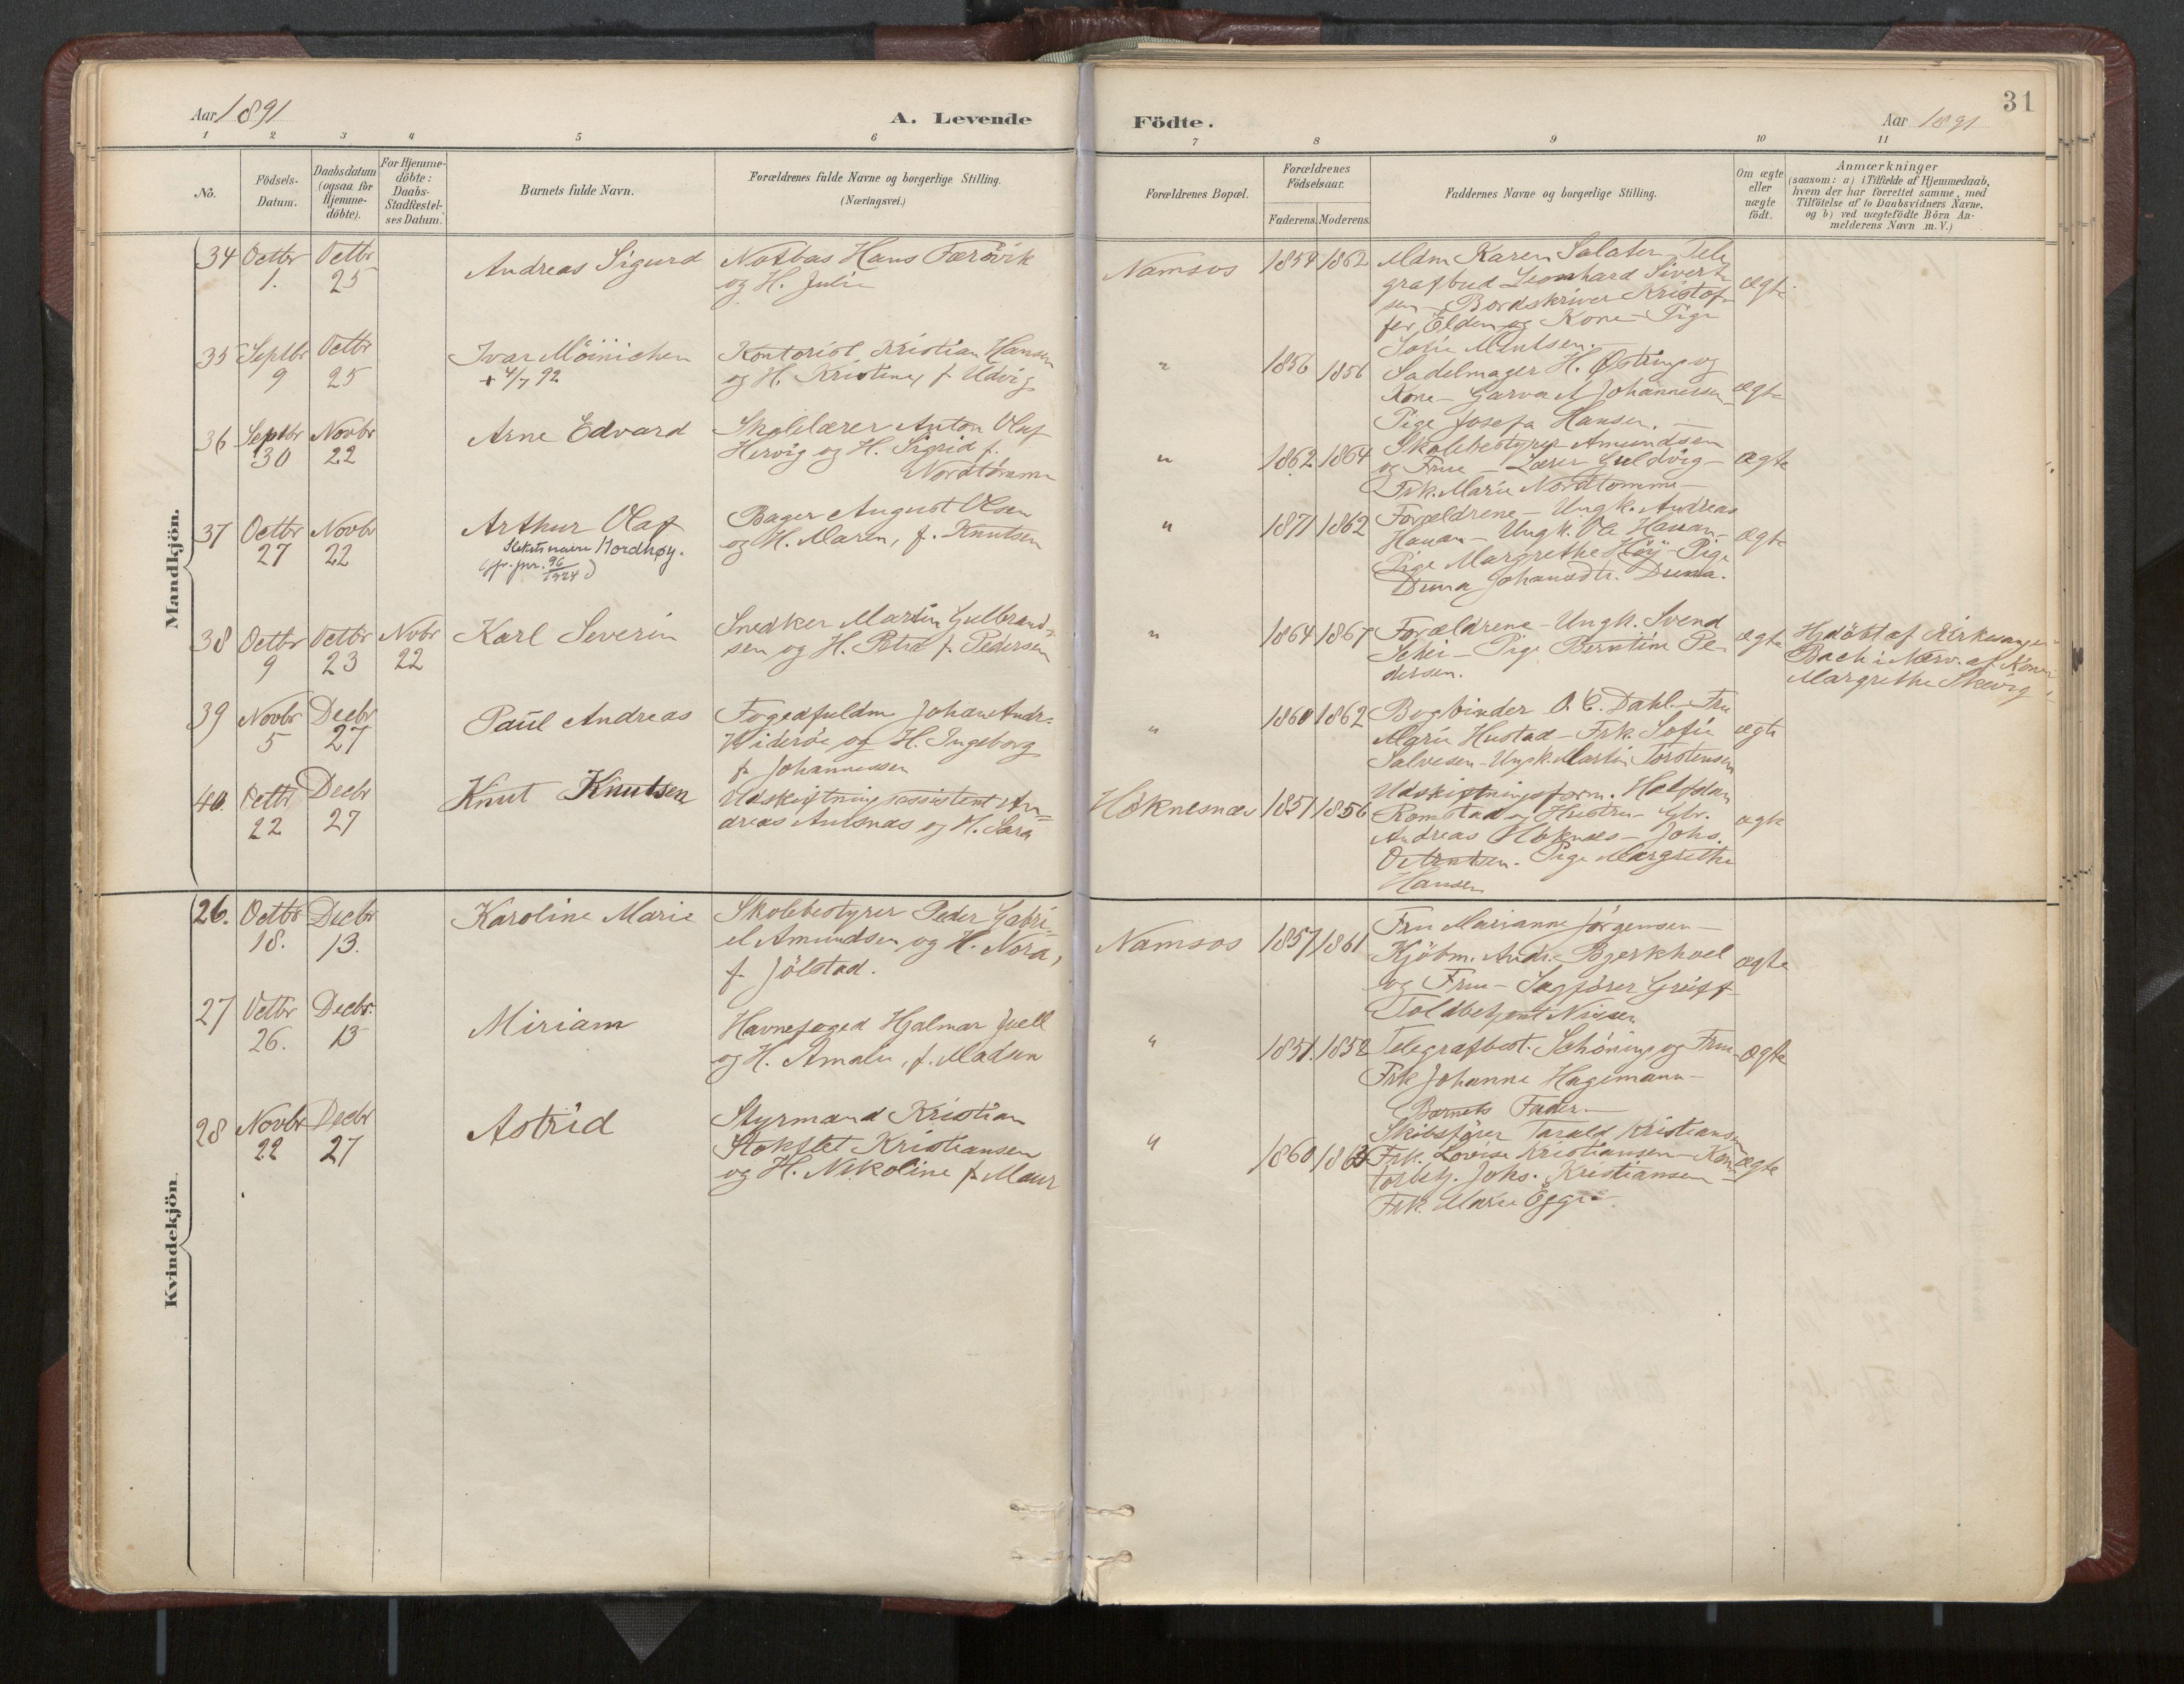 Aar 1891
A. Levende
Födte.
Aar 1891
31
1 2 3 4 5 6 7 8 9 10 11
No.
Födsels-
Datum.
Daabsdatum
(ogsaa for
Hjemme-
döbte).
For Hjemme-
döbte:
Daabs-
Stadfæstel-
ses Datum.
Barnets fulde Navn.
Forældrenes fulde Navne og borgerlige Stilling.
(Næringsvei.)
Forældrenes Bopæl.
Forældrenes
Födselsaar.
Faderens. Moderens.
Faddernes Navne og borgerlige Stilling.
Om ægte
eller
uægte
födt.
Anmærkninger
(saasom: a) i Tilfælde af Hjemmedaab,
hvem der har forrettet samme, med
Tilföielse af to Daabsvidners Navne,
og b) ved uægtefödte Börn An-
melderens Navn m. V.)
Mandkjön.
34 Octbr 1. Octbr 25
Andreas Sigurd
Notbas Hans Færövik
og H. Julie
Namsos
1854 1862
Mdm Karen Salater - Tele
grafbud Leonhard Sivert
sen - Bordskriver Kristof-
fer Elden og Kone - Pige
Sofie
ægte
35 Septbr 9 Octbr 25
Ivar Möinichen
+ 4/7 92
Kontorist Kristian Hansen
og H. Kristine, f. Udvig
"
1856 1856
Sadelmager H. Østring og
Kone - Garver A Johannessen
Pige Josefa Hansen.
ægte
36 Septbr 30 Novbr 22
Arne Edvard
Skolelærer Anton Olaf
Hervig og H. Sigrid f.
Nordtömme
"
1862 1864
Skolebestyrer Amundsen
og Frue - Lærer Guldvig -
Frk. Marie Nordtömme -
ægte
37 Octbr 27 Novbr 22
Arthur Olaf
Slektsnavn Nordhøy.
(jfr. jnr. 96/1924)
Bager August Olsen
og H. Maren, f. Knutsen
"
1871 1862
Forældrene - Ungk. Andreas
Hauan - Ungk. Ole Hauan -
Pige Margrethe Höy - Pige
Duna Johansdtr. Duna.
ægte
38 Octbr 9 Octbr 23 Novbr 22
Karl Severin
Snedker Martin Gulbrand-
sen og H. Petra f. Pedersen
"
1864 1867
Forældrene - Ungk. Svend
Schei - Pige Berntine Pe-
dersen.
ægte
Hjdöbt af Kirkesanger
Bach i Nærv. af Kone
Margrethe Skevig
39 Novbr 5 Decbr 27
Paul Andreas
Fogedfuldm Johan Andr.
Wideröe og H. Ingeborg
f. Johannessen
"
1860 1862
Bogbinder O. C. Dahl - Fru
Marie Hustad - Frk. Sofie
Salvesen - Ungk. Martin Torstensen
ægte
40 Octbr 22 Decbr 27
Knut Knutsen
Udskiftningsassistent An-
dreas Aulsnæs og H. Sara
Höknesnæs
1851 1856
Udskiftningsform. Halfdan
Romstad og Hustru - Gbr.
Andreas Höknes - Johs.
Pige Margrethe
Hansen
ægte
Kvindekjön.
26. Octbr 18. Decbr 13.
Karoline Marie
Skolebestyrer Peder Gabri-
el Amundsen og H. Nora,
f. Jölstad.
Namsos
1857 1861
Fru Marianne Jörgensen -
Kjöbm. Andr. Bjerkhoel
og Frue - Sagförer Greiff
Toldbetjent Nissen
ægte
27 Octbr 26. Decbr. 13
Miriam
Havnefoged Hjalmar Juell
og H. Amalie, f. Madsen
"
1851. 1852
Telegrafbest. Schöning og Frue
Frk Johanne Hagemann -
Barnets Fader -
ægte
28 Novbr 22 Decbr 27
Astrid
Styrmand Kristian
Stokflet Kristiansen
og H. Nikoline f. Maur
"
1860 1863
Skibsförer Tarald Kristiansen
Frk. Lovise Kristiansen - Kon-
torbetj. Johs. Kristiansen
Frk. Marie Egge
ægte